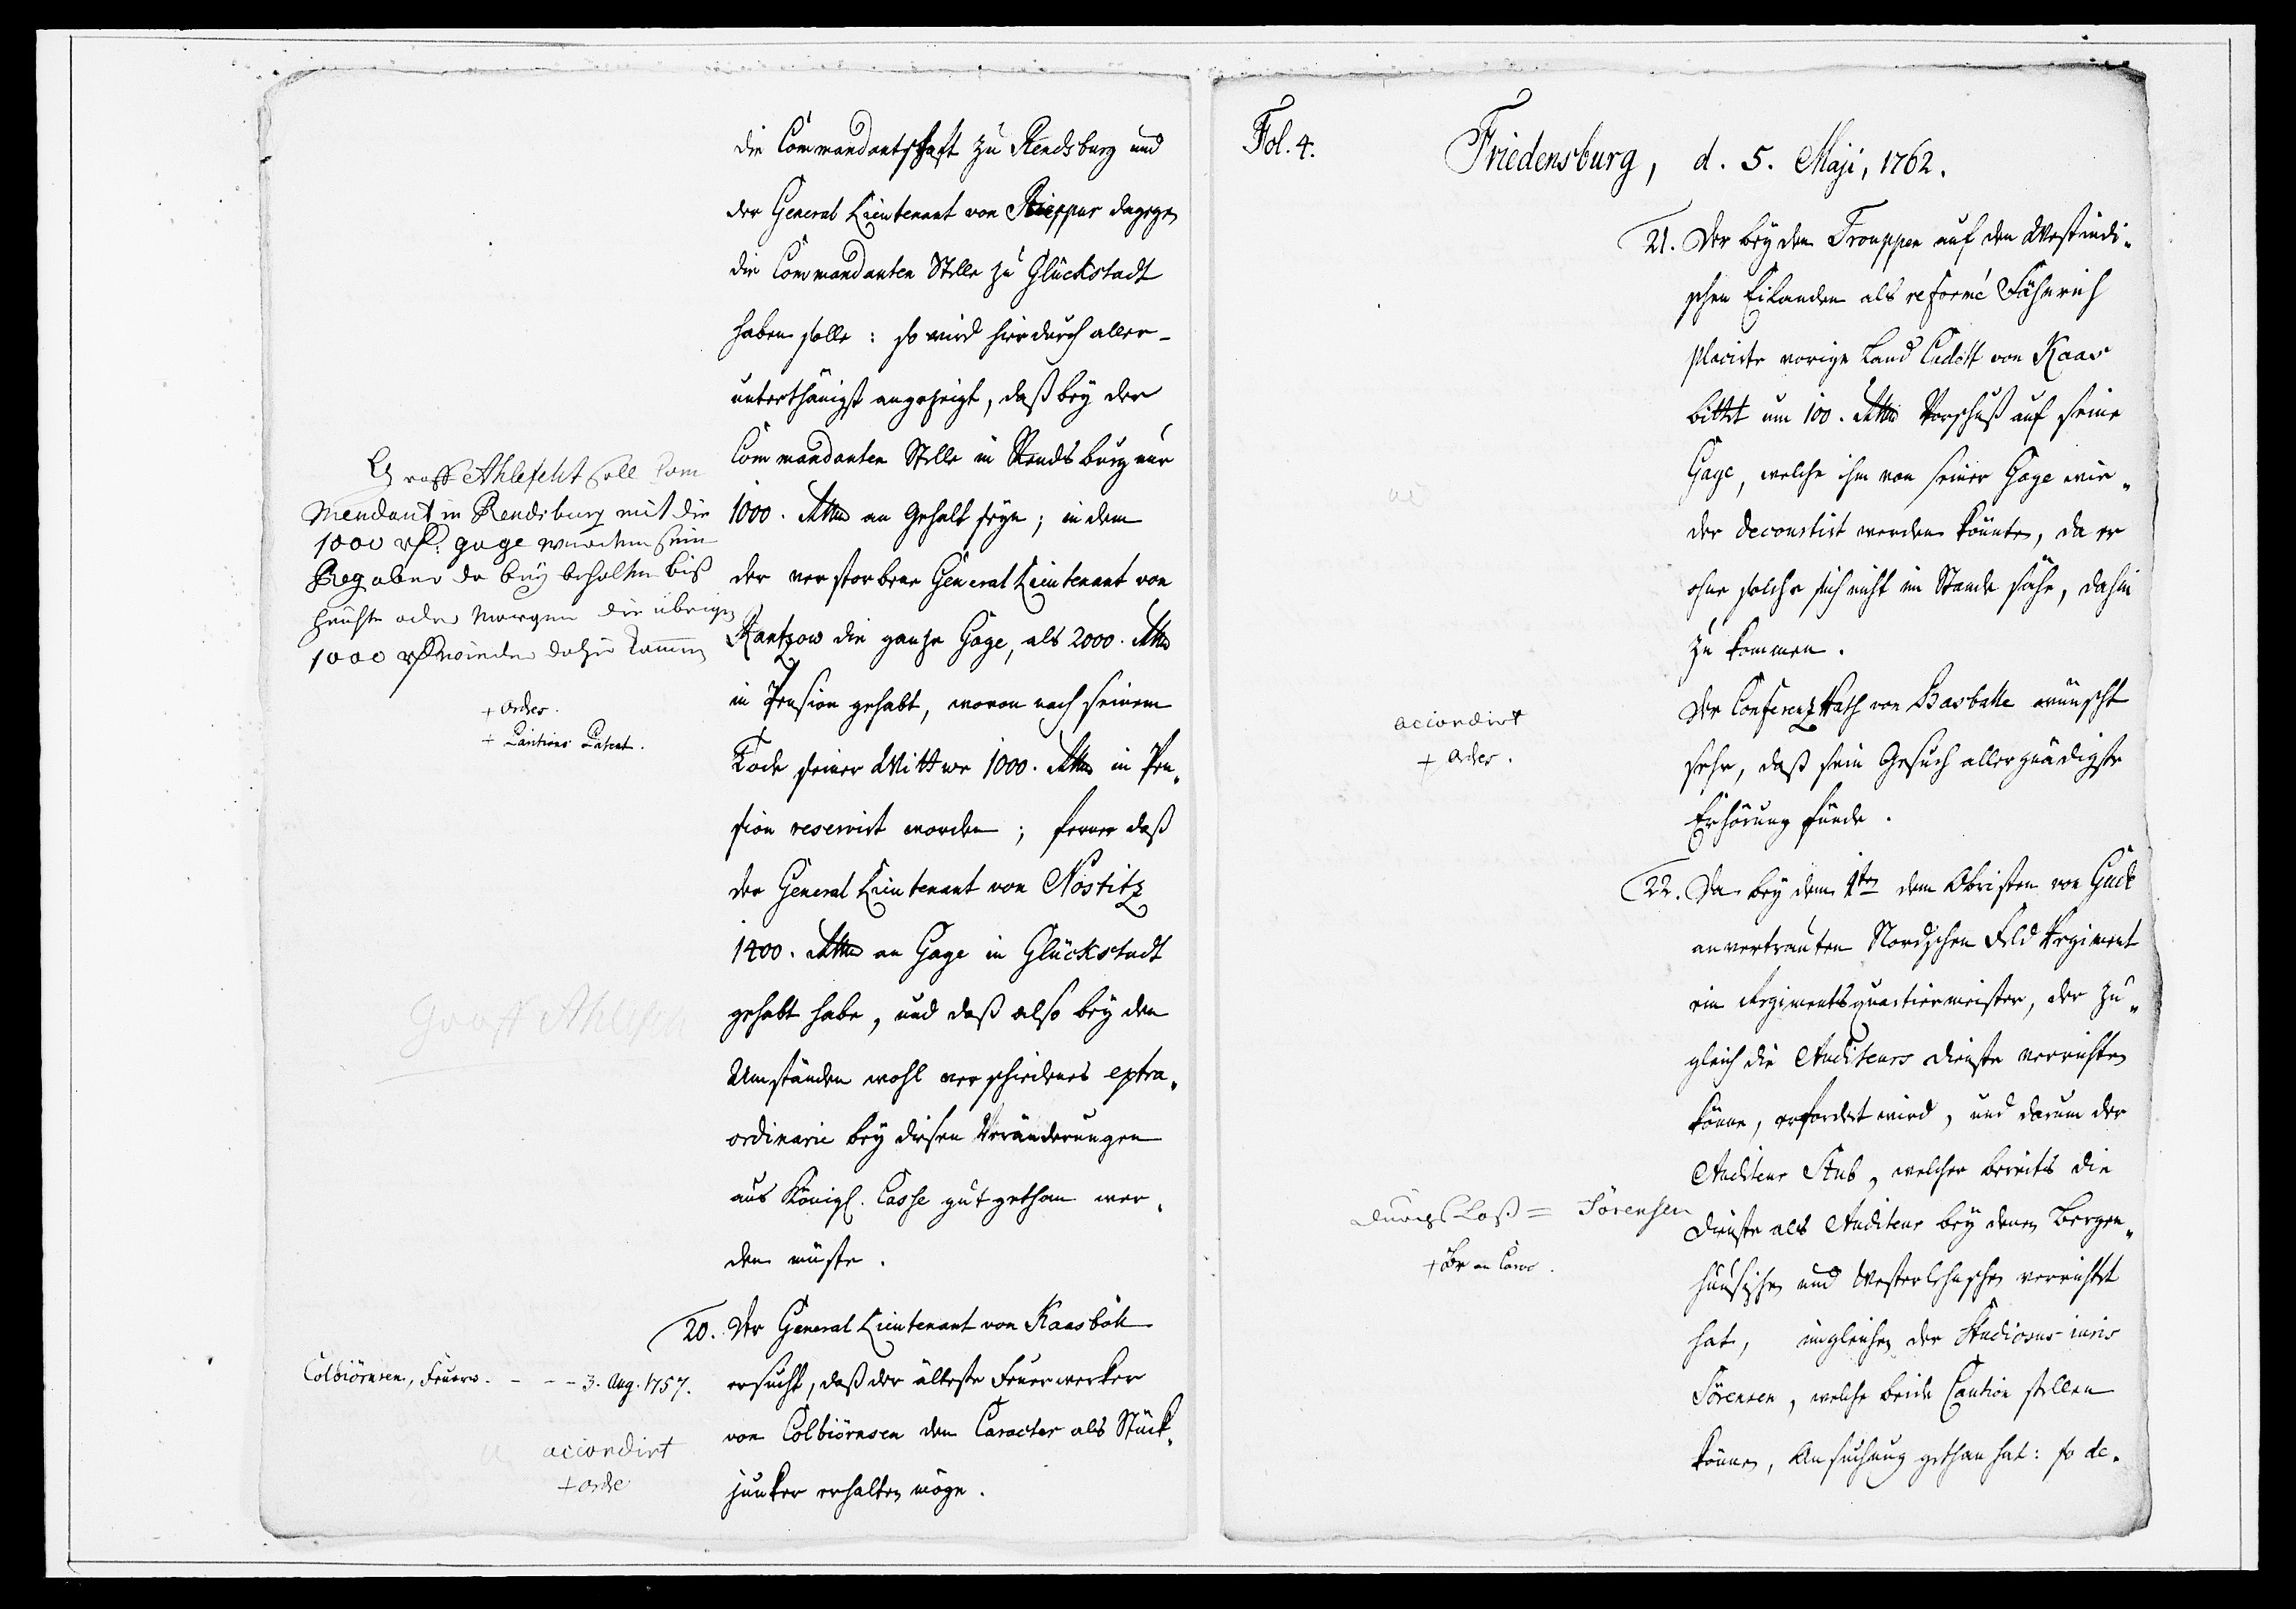 die Commandantschaft zu Rendsburg und
der General Lieutenant von Rieppur dagegen
die Commandanten Stelle zu Glückstadt
haben solle: so wird hierdurch aller-
unterthänigst angezeigt, daß bey der
Commandanten Stelle in Rendsburg nur
1000. Rthlr an Gehalt seyn; indem
der verstorbene General Lieutenant von
Rantzow die ganze Gage, als 2000. Rthlr
in Pension gehabt, wovon nach seinem
Tode seiner Wittwe 1000. Rthlr in Pen„
sion reservirt worden; ferner daß
der General Lieutenant von Nostitz
1400. Rthlr an Gage in Glückstadt
gehabt habe, und daß also bey den
Umständen wohl verschiedenes extra„
ordinarie bey diesen Veränderungen
aus Königl. Casse gut gethan wer„
den müste.
Graff Ahlefeldt soll Com
mendant in Rendsburg mit die
1000 rf: gage werden sein
Reg aber da bey behalten biß
heuhte oder Morgen die übrigen
1000 rf wieder dahin kommen
+ order.
+ Patent.
Graff Ahlefeld
20. Der General Lieutenant von Kaasböll
ersucht, daß der älteste Feuerwerker
von Colbiörnsen den Caracter als Stück„
junker erhalten möge.
Colbiörnsen, Feuerw. - - - 3. Aug. 1757.
accordirt
+ orde
Fol. 4.
Friedensburg, d. 5. Maji, 1762.
21. Der bey den Trouppen auf den Westindi„
schen Eilanden als reformé Fähnrich
placirte vorige Land Cadett von Kaas
bittet um 100. Rthlr Vorschuß auf seine
Gage, welche ihm von seiner Gage wie„
der decourtirt werden könnte, da er
ohne solche sich nicht im Stande sähe, dahin
zu kommen.
Der Conferenz Rath von Basballe wünscht
sehr, daß sein Gesuch allergnädigste
Erhörung fünde.
accordirt
+ order.
22. Da bey dem 1ten dem Obristen von Gude
anvertrauten Nordschen Feld Regiment
ein Regimentsquartiermeister, der zu„
gleich die Auditeurs Dienste verrichten
könne, erfordert wird, und darum der
Auditeur Stub, welcher bereits die
Dienste als Auditeur bey denen Bergen„
huusischen und Westerlehnschen verrichtet
hat, imgleichen der Studiosus iuris
Sörensen, welche beide Caution stellen
können, Ansuchung gethan hat: so de„
durchs Loß = Sörensen